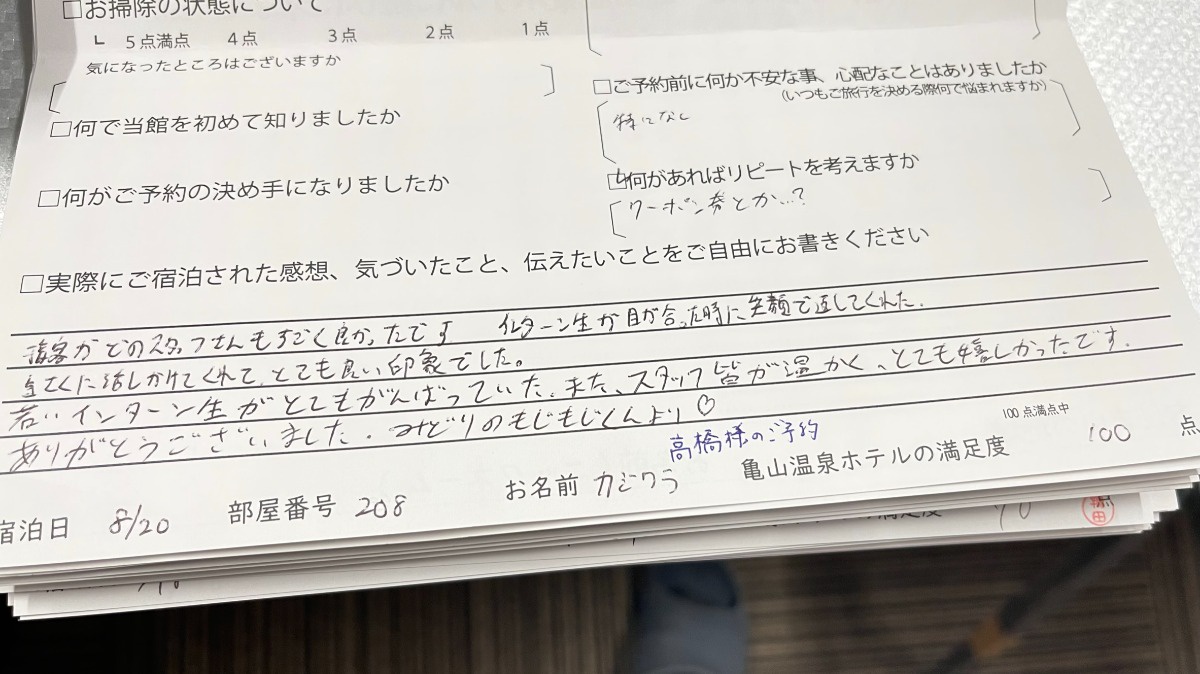 □お掃除の状態について
┗ 5点満点 4点 3点 2点 1点
気になったところはございますか
□何で当館を初めて知りましたか
□何がご予約の決め手になりましたか
□ご予約前に何か不安な事、心配なことはありましたか
(いつもご旅行を決める際何で悩まれますか)
特になし
□何があればリピートを考えますか
クーポン券とか…?
□実際にご宿泊された感想、気づいたこと、伝えたいことをご自由にお書きください
接客がどのスタッフさんもすごく良かったです インターン生が目が合った時に笑顔で返してくれた.
気さくに話しかけてくれて、とても良い印象でした。
若いインターン生がとてもがんばっていた。また、スタッフ皆が温かく、とても嬉しかったです.
ありがとうございました. みどりのもじもじくんより♡
高橋様のご予約
100点満点中
宿泊日 8/20 部屋番号 208 お名前 カジワラ 亀山温泉ホテルの満足度 100 点